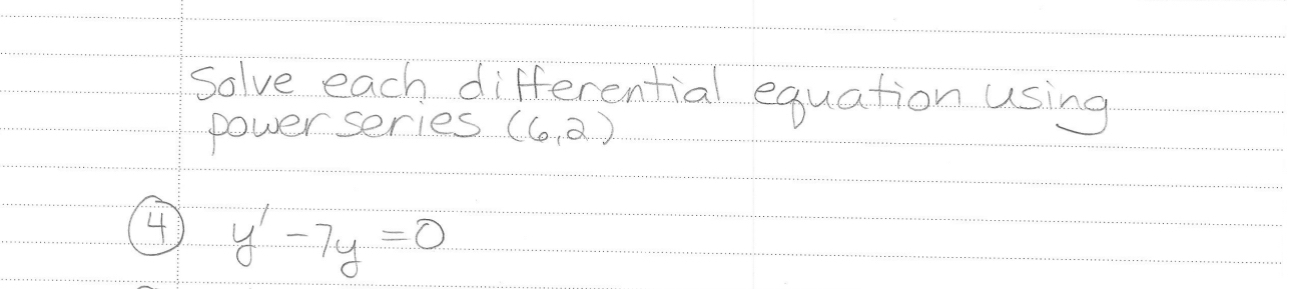 Solve each differential equation using
power series (6,2)
④ y' - 7y = 0